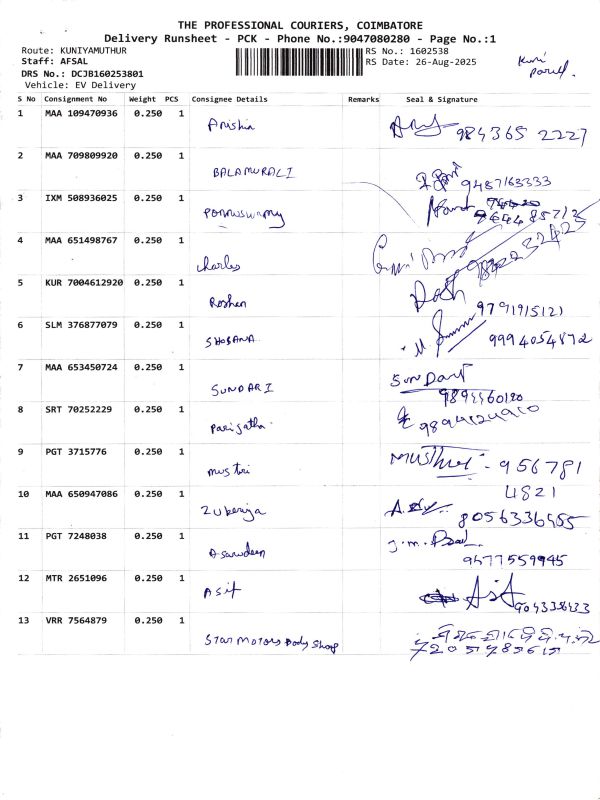 THE PROFESSIONAL COURIERS, COIMBATORE
Delivery Runsheet - PCK - Phone No.:9047080280 - Page No.:1
Route: KUNIYAMUTHUR
RS No.: 1602538
Staff: AFSAL
RS Date: 26-Aug-2025
DRS No.: DCJB160253801
Vehicle: EV Delivery
S No Consignment No Weight PCS Consignee Details Remarks Seal & Signature
1 MAA 109470936 0.250 1 Anishia 984365 2227
2 MAA 709809920 0.250 1 BALAMURALI 9487163333
3 IXM 508936025 0.250 1 Ponnuswamy
4 MAA 651498767 0.250 1 charles
5 KUR 7004612920 0.250 1 Roshan 9791915121
6 SLM 376877079 0.250 1 SHOBANA 9994054872
7 MAA 653450724 0.250 1 SUNDARI
9894460120
8 SRT 70252229 0.250 1 Parijatha
9 PGT 3715776 0.250 1 mustri 956781
4821
10 MAA 650947086 0.250 1 Zukeriya 8056336455
11 PGT 7248038 0.250 1 Asarudeen
9477559945
12 MTR 2651096 0.250 1 Asif Asif
13 VRR 7564879 0.250 1 Star Motors Body Shop